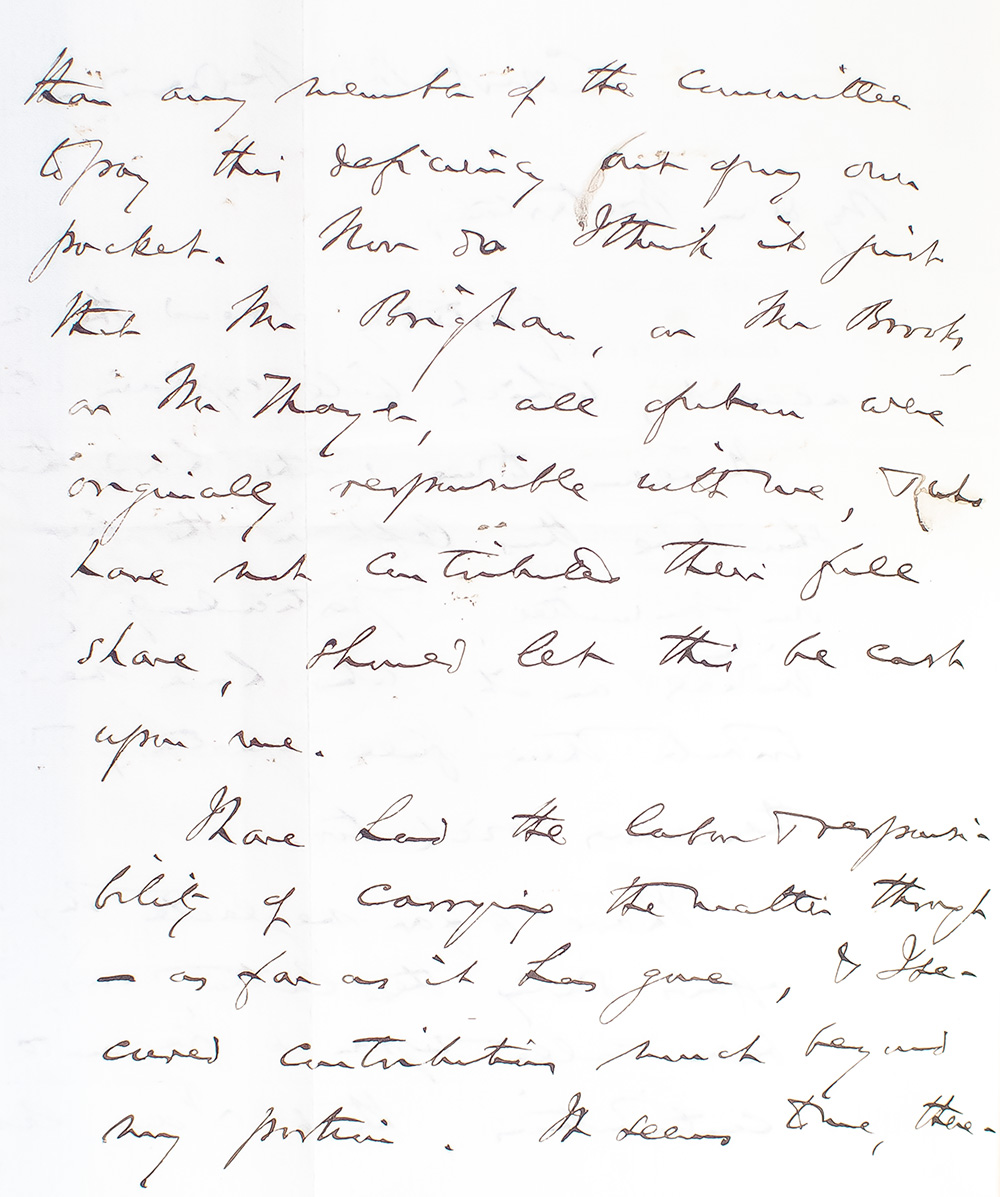 than any member of the Committee
to pay this deficiency out of my own
pocket. Nor do I think it just
that Mr Brigham, or Mr Brooks,
or Mr Thayer, all of whom were
originally responsible with me, & who
have not contributed their full
share, should let this be cast
upon me.
I have had the labor & responsi-
bility of carrying the matter through
— as far as it has gone, & I se-
cured contributions much beyond
my portion. It seems to me, there-